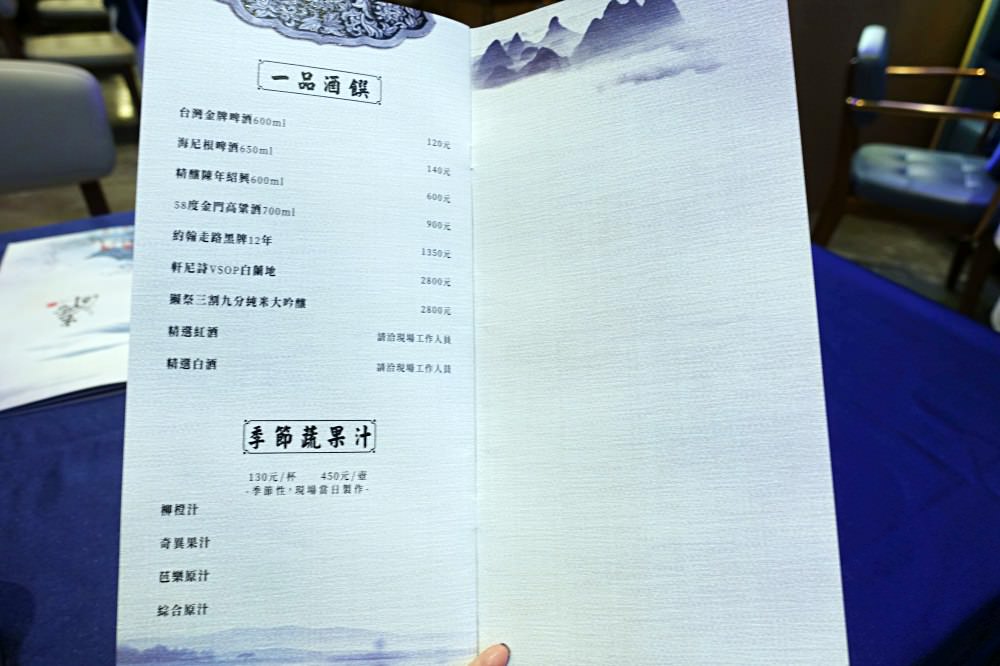 一品酒饌
台灣金牌啤酒600ml 120元
海尼根啤酒650ml 140元
精釀陳年紹興600ml 600元
58度金門高粱酒700ml 900元
約翰走路黑牌12年 1350元
軒尼詩VSOP白蘭地 2800元
獺祭三割九分純米大吟釀 2800元
精選紅酒 請洽現場工作人員
精選白酒 請洽現場工作人員
季節蔬果汁
130元/杯 450元/壺
-季節性，現場當日製作-
柳橙汁
奇異果汁
芭樂原汁
綜合原汁